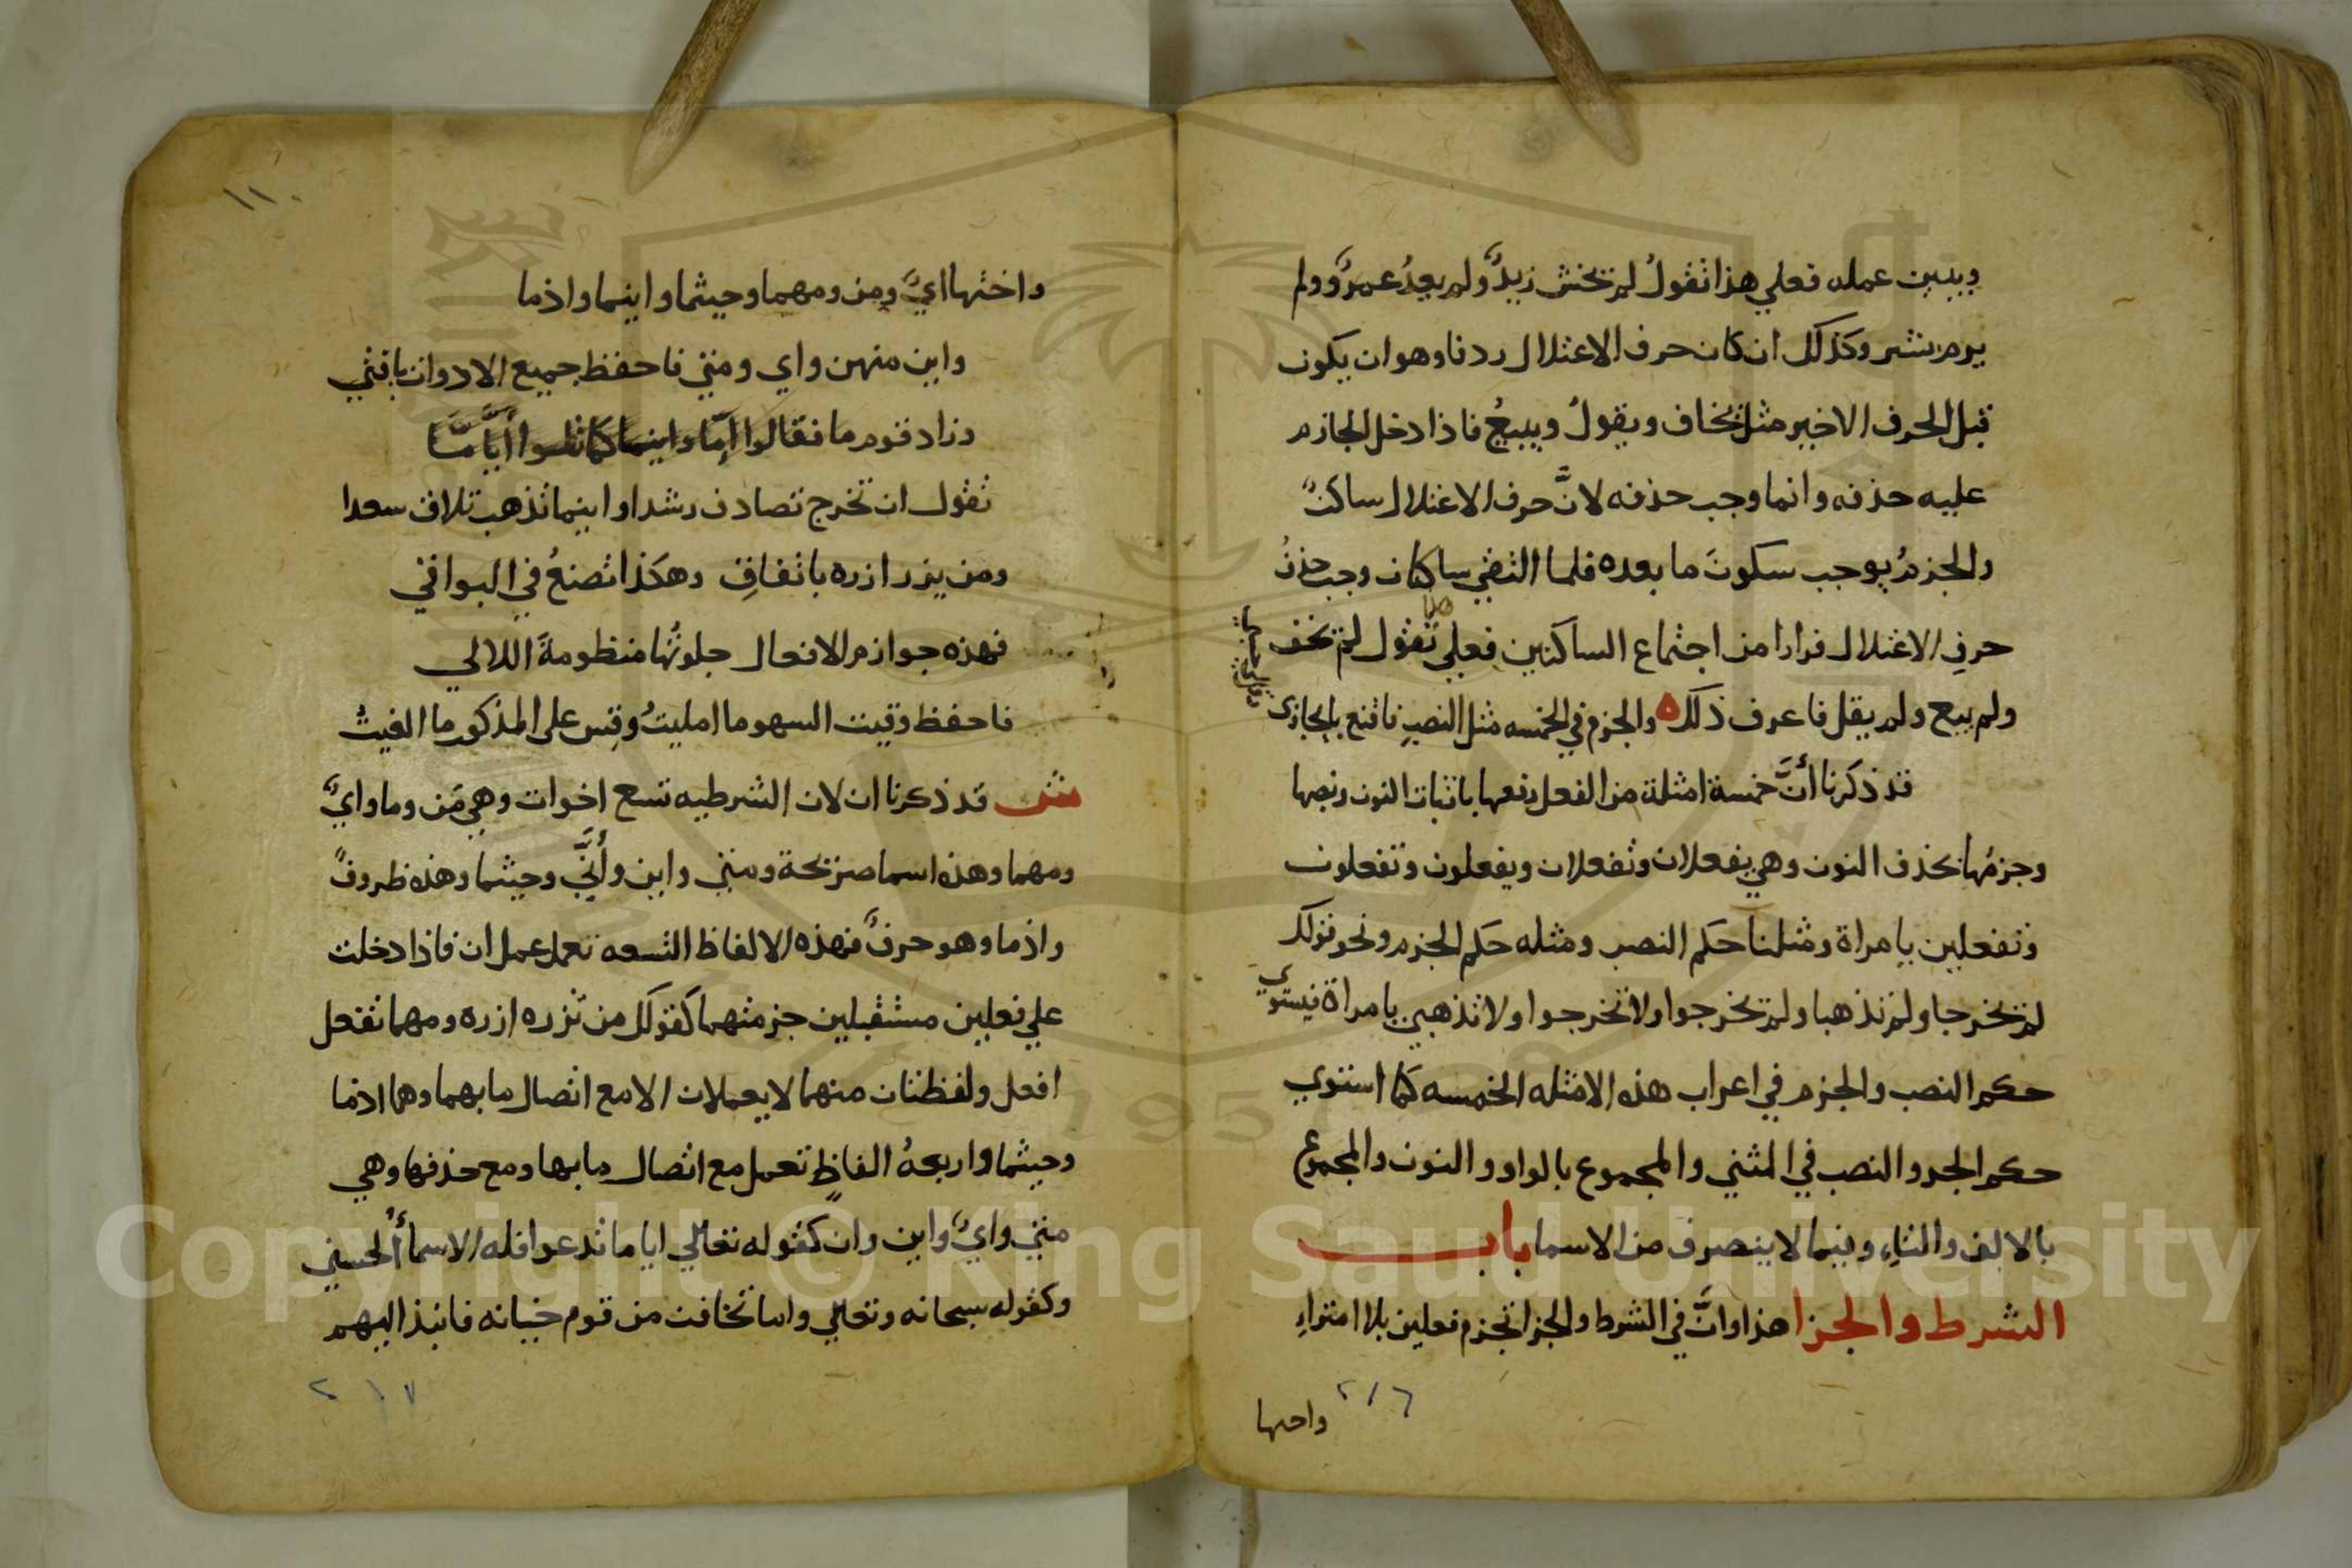 ويبين عمله فعلي هذا تقولُ لم يخش زيدٌ ولم يعدُ عمرٌو ولم
يرم بشر وكذلك ان كان حرف الاعتلال ردفا وهو ان يكون
قبل الحرف الاخير مثل يخاف ويقولُ ويبيعُ فاذا دخل الجازم
عليه حذفه وانما وجب حذفه لانَّ حرف الاعتلال ساكنٌ
والجزمُ يوجب سكونَ ما بعده فلما التقي ساكنان وجب حذفُ
حرفِ الاعتلال فرارا من اجتماع الساكنين فعلي هذا تقول لم يخف
ولم يبع ولم يقل فاعرف ذلك ه والجزم في الخمسه مثل النصبِ فاقنع بايجازي
قد ذكرنا أنَّ خمسة امثلة من الفعل رفعها باثبات النون ونصبها
وجزمُها بحذف النون وهي يفعلان وتفعلان ويفعلون وتفعلون
وتفعلين يامراة ومثلنا حكم النصب ومثله حكم الجزم ونحو قولك
لم يخرجا ولم تذهبا ولم يخرجوا ولا تخرجوا ولا تذهبي يامراة فيستوي
حكم النصب والجزم في اعراب هذه الامثله الخمسه كما استوي
حكم الجر والنصب في المثني والمجموع بالواو والنون والمجموع
بالالف والتاء وفيما لا ينصرف من الاسما باب
الشرط والجزا هذا وانَّ في الشرط والجزا تجزم فعلين بلا امتراءِ
٢١٦
واختها
١١٠
واختها ايٌّ ومن ومهما وحيثما واينما واذما
واين منهن واي ومتي فاحفظ جميع الادوات يافتي
وزاد قوم ما فقالوا إمّا واينما كما تلوا أيًّا مّا
تقول ان تخرج تصادف رشدا واينما تذهب تلاق سعدا
ومن يزر ازره باتفاقِ وهكذا تصنعُ في البواقي
فهذه جوازم الافعال جلوتُها منظومةَ اللالي
فاحفظ وقيت السهو ما امليتُ وقِس على المذكور ما الغيتُ
ش قد ذكرنا ان لان الشرطيه تسع اخوات وهي مَن وما وايٌّ
ومهما وهذه اسما صريحة ومتي واين وأنَّي وحيثما وهذه ظروفٌ
واذما وهو حرفٌ فهذه الالفاظ التسعه تعمل عمل ان فاذا دخلت
علي فعلين مستقبلين جزمتهما كقولك من تزره ازره ومهما تفعل
افعل ولفظتان منهما لا يعملان الا مع اتصال ما بهما وهما اذما
وحيثما واربعةُ الفاظٍ تعمل مع اتصال ما بها ومع حذفها وهي
متي وايٌّ واين وان كقوله تعالي اياما تدعوا فله الاسمأُ الحسني
وكقوله سبحانه وتعالي واما تخافن من قوم خيانه فانبذ اليهم
٢١٧
Copyright © King Saud University